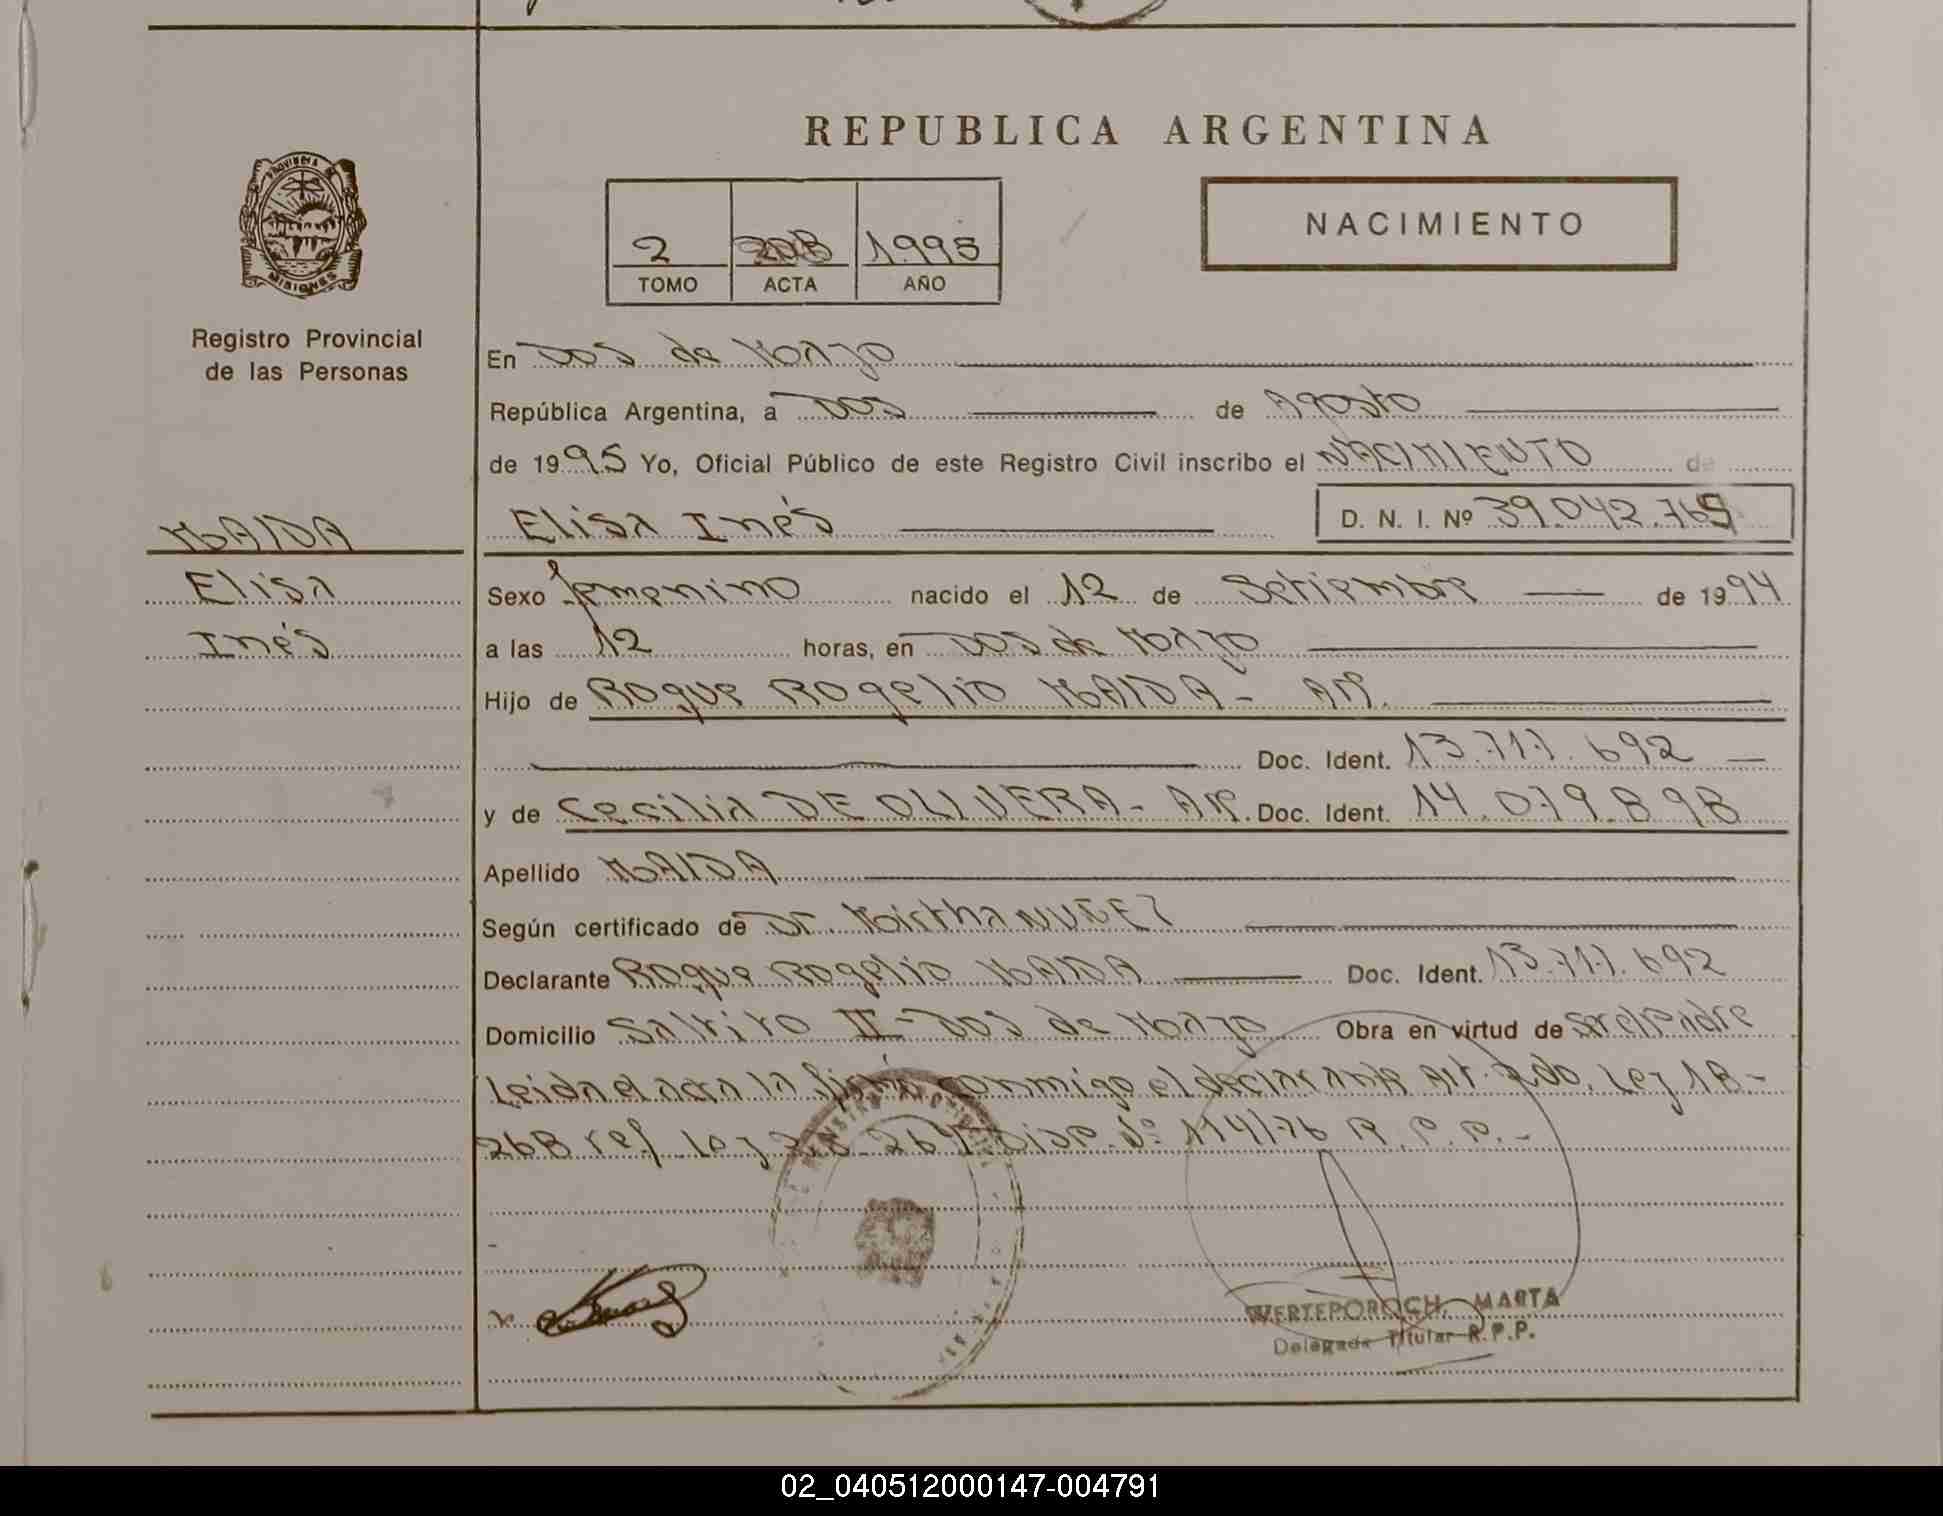 REPUBLICA ARGENTINA
PROVINCIA DE MISIONES
Registro Provincial
de las Personas
NACIMIENTO
2 208 1995
TOMO ACTA AÑO
En Dos de Mayo
República Argentina, a Dos de Agosto
de 1995 Yo, Oficial Público de este Registro Civil inscribo el NACIMIENTO de
Elisa Inés D. N. I. Nº 39.042.765
MAIDA
Elisa
Inés
Sexo femenino nacido el 12 de Setiembre de 1994
a las 12 horas, en Dos de Mayo
Hijo de Roque Rogelio MAIDA - Ar.
Doc. Ident. 13.717.692
y de Cecilia DE OLIVERA - Ar. Doc. Ident. 14.079.898
Apellido MAIDA
Según certificado de Dr. Mirtha NUÑEZ
Declarante Roque Rogelio MAIDA Doc. Ident. 13.717.692
Domicilio Salrito II - Dos de Mayo Obra en virtud de ser el Padre
Leida el acta la firma conmigo el declarante Art. 2do. Ley 18-
268 ref. Ley 20.264 Disp. Nº 114/76 R.P.P.-
WERTEPOROCH, MARTA
Delegada Titular R.P.P.
02_040512000147-004791